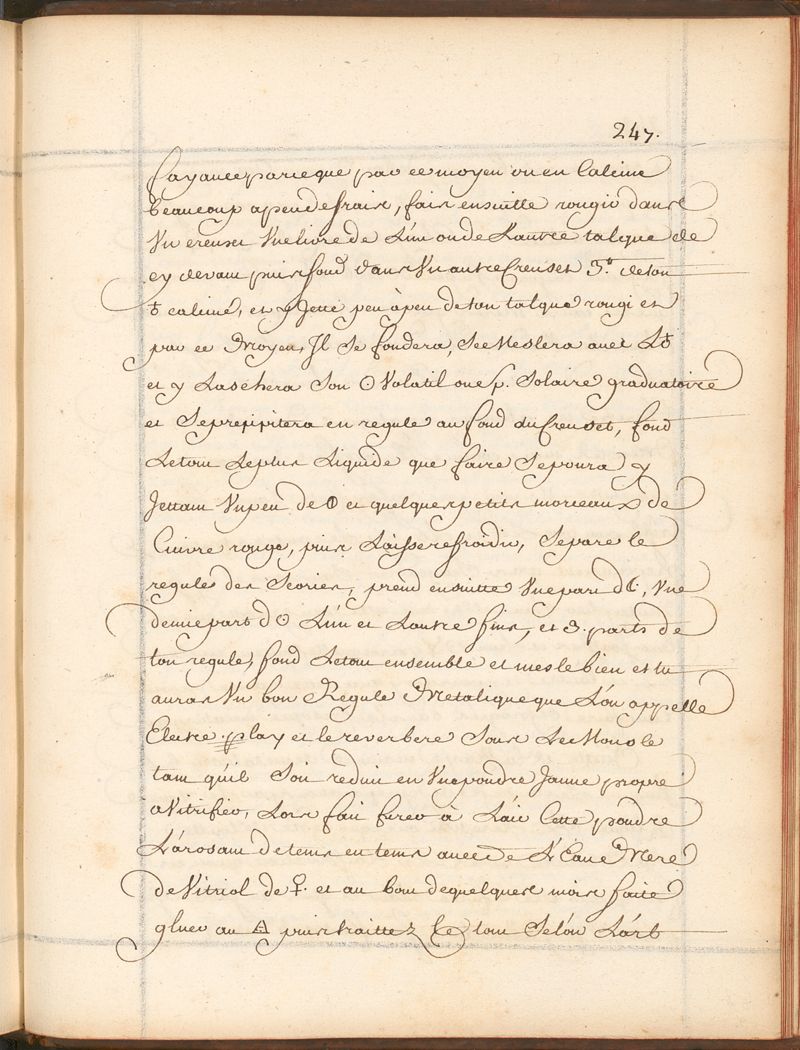 247.
fayance parceque par ce moyen on en Calcine
beaucoup apeu de frais, fais ensuitte rougir dans
Vn creuset Vne livre de L'un ou de L'autre talque de
cy devant puis fond dans Vn autre Creuset 3.# de ton
♁ calciné, et y Jette peu à peu de ton talque rougi et
par ce Moyen, Jl Se fondera, Se Meslera avec L♁
et y Laschera Son ☉ Volatil ou e∫p. Solaire graduatoire
et Seprecipitera en regule au fond du Creuset, fond
Letout Leplus Liquide que faire Sepoura y
Jettant Vnpeu de 🜕 et quelques petits morceaux de
Cuivre rouge, puis Laisse refroidir, Separe le
regule des Scories, prend ensuitte Vne part d☾, Vne
demie part d☉ L'un et Lautre fins, et 3. parts de
ton regule, fond Letout ensemble et mesle bien et tu
auras Vn bon Regule Metalique que L'on appelle
Electre. play et le reverbere Sous Le Moufle
tant qu'il Soit reduit en Vne poudre Jaune propre
a Vitrifier, Lors fait fuser à L'air Cette poudre
L'arosant de tems en tems avec de L'Eau Mere
de Vitriol de ♀. et au bout de quelques mois faite
gluer au 🜁 puis traittez Le tout Selon L'art